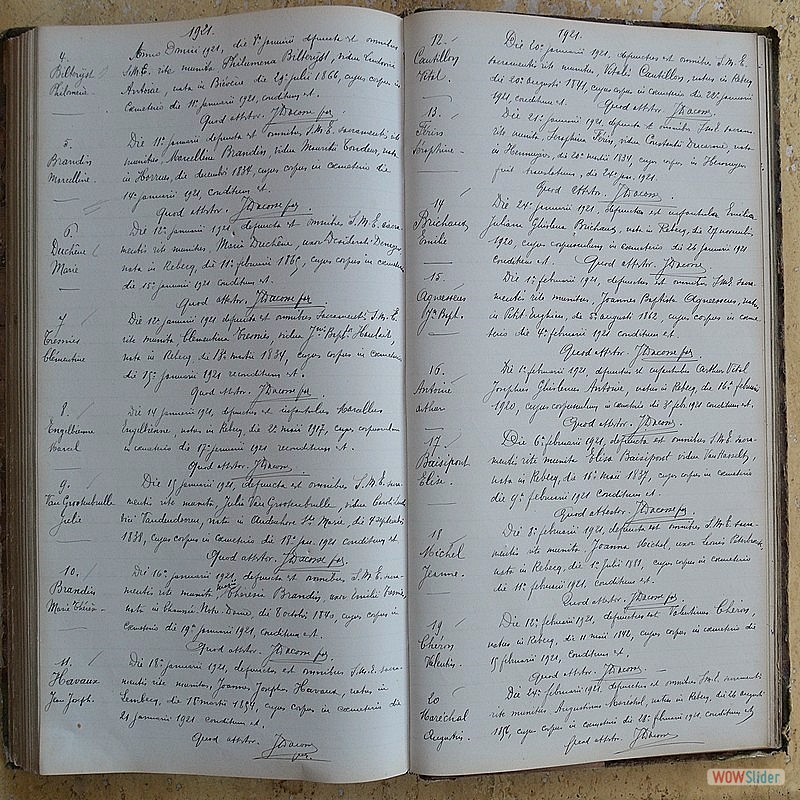 1921.
4.
Bilterijst
Philomène
Anno Domini 1921, die 7a januarii defuncta est omnibus
S.M.E. rite munita Philomena Bilterijst, vidua
Antoine, nata in Biévène die 29a julii 1866, cujus corpus in
Cœmeterio die 11a januarii 1921, conditum est.
Quod attestor. J Dacosse
5.
Brandin
Marcelline
Die 11a januarii defuncta est omnibus S.M.E. sacramentis rite
munita, Marcellina Brandin vidua nata
in Horrues, die decembri 1834, cujus corpus in cœmeterio die
14a januarii 1921, conditum est.
Quod attestor. J Dacosse
6
Duchêne
Marie
Die 12a januarii 1921, defuncta est omnibus S.M.E. sacra-
mentis rite munita, Maria Duchêne, uxor
nata in Rebecq, die 11a februarii 1865, cujus corpus in cœmeterio
die 15 januarii 1921 conditum est.
Quod attestor. J Dacosse
7
Clémentine
Die 12a januarii 1921 defuncta est omnibus Sacramentis S.M.E.
rite munita Clementina vidua
nata in Rebecq die 18a maii 1834, cujus corpus in cœmeterio
die 15a januarii 1921 reconditum est.
Quod attestor. J Dacosse
8.
Engelbienne
Marcel
Die 14 januarii 1921, defunctus est Marcellus
Engelbienne, natus in Rebecq, die 22 maii 1917, cujus corpusculum
in cœmeterio die 17a januarii reconditum est.
Quod attestor. J Dacosse
9.
Julie
Die 15 januarii 1921, defuncta est omnibus S.M.E. sacra-
mentis rite munita, Julia vidua
nata in Audenhove Ste Marie, die
1838, cujus corpus in cœmeterio die 18a jan. 1921 conditum est
Quod attestor. J Dacosse
10.
Brandin
Marie Thérèse
Die 16a januarii 1921, defuncta est omnibus, S.M.E. sacra-
mentis rite munita Maria Theresia Brandin, uxor
nata in Chaussée Notre-Dame, die 8 octobri 1840, cujus corpus in
Cœmeterio die 19a januarii 1921, conditum est.
Quod attestor. J Dacosse
11.
Havaux
Jean Joseph.
Die 18a januarii 1921, defunctus est omnibus S.M.E. sacra-
mentis rite munitus, Joannes Josephus Havaux, natus in
cujus corpus in cœmeterio die
21 januarii 1921 conditum est.
Quod attestor. J Dacosse
1921.
12.
Cantillon
Vital.
Die 20a januarii 1921, defunctus est omnibus S.M.E.
sacramentis rite munitus, Vitalis Cantillon, natus in Rebecq
die 20a augusti 1841, cujus corpus in cœmeterio die 22a januarii
1921, conditum est.
Quod attestor. J Dacosse
13.
Séraphine
Die 21a januarii 1921, defuncta est omnibus S.M.E. sacra-
mentis rite munita, Seraphina vidua
in Hennuyer, die 1834 cujus corpus, in Hennuyer
fuit translatum, die 24a jan. 1921.
Quod attestor. J Dacosse
14
Brichaux
Emilie
Die 24a januarii 1921, defuncta est Emilia
Juliana Ghislena Brichaux, nata in Rebecq, die 29 novembri
1920, cujus corpusculum in cœmeterio die 26 januarii 1921
conditum est.
Quod attestor. J Dacosse
15.
Agneessens
Jn Bapt.
Die 1a februarii 1921, defunctus est, omnibus S.M.E. sacra-
mentis rite munitus, Joannes Baptista Agneessens, natus
in Petit-Enghien, die 5a augusti 1862, cujus corpus in cœme-
terio die 4a februarii 1921 conditum est.
Quod attestor. J Dacosse
16.
Antoine
Arthur
Die 1a februarii 1921, defunctus est Arthur Vital
Josephus Ghislenus Antoine, natus in Rebecq, die 16a februarii
1920, cujus corpusculum in cœmeterio die 3a feb. 1921 conditum est.
Quod attestor. J Dacosse
17
Baisipont
Elise.
Die 6a februarii 1921, defuncta est omnibus S.M.E. sacra-
mentis rite munita Elisa Baisipont vidua Van Hasselt,
nata in Rebecq, die 16a maii 1837, cujus corpus in cœmeterio
die 9a februarii 1921 conditum est.
Quod attestor. J Dacosse
18
Michel
Jeanne.
Die 8a februarii 1921, defuncta est omnibus, S.M.E. sacra-
mentis rite munita. Joanna Michel, uxor Leonis
nata in Rebecq, die 1a julii 1881, cujus corpus in cœmeterio
die 11a februarii 1921, conditum est.
Quod attestor. J Dacosse
19
Chéron
Valentin.
Die 12a februarii 1921, defunctus est Valentinus Chéron,
natus in Rebecq, die 11 maii 1842, cujus corpus in cœmeterio die
15 februarii 1921, conditum est.
Quod attestor. J Dacosse
20
Maréchal
Augustin.
Die 24a februarii 1921, defunctus est omnibus S.M.E. sacramentis
rite munitus Augustinus Marechal, natus in Rebecq, die 26 augusti
cujus corpus in cœmeterio die 28a februarii 1921, conditum est
Quod attestor J Dacosse
WOWSlider